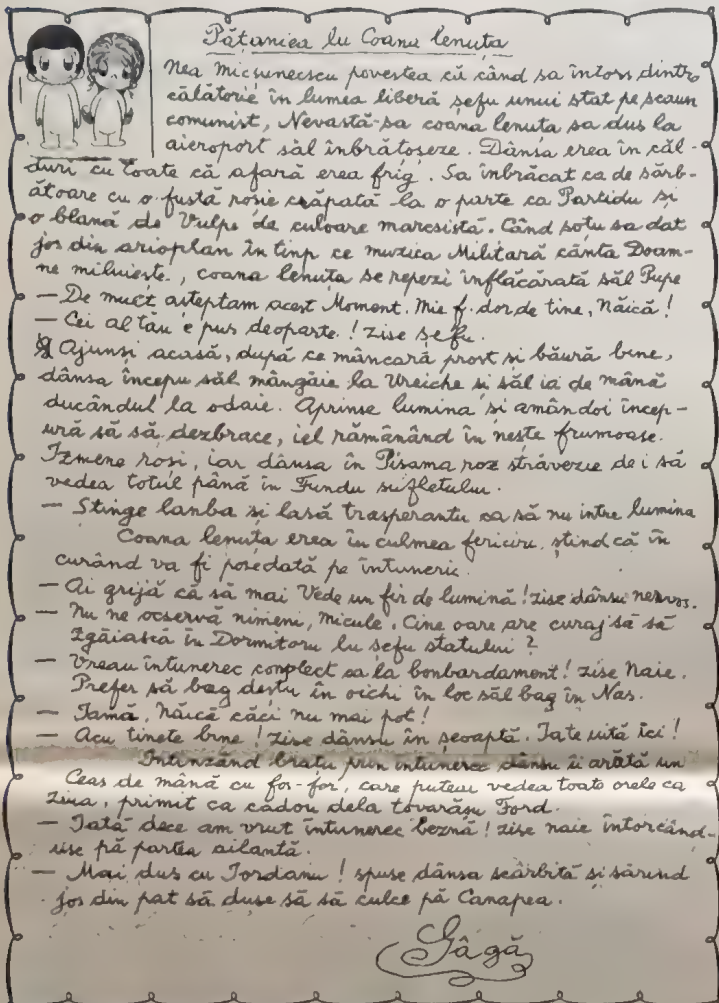 Pătaniea lu Coana lenuța
Nea Micșunescu povestea că când sa întors dintro
călătorie în lumea liberă șefu unui stat pe scaun
comunist, Nevastă-sa coana lenuța sa dus la
aieroport săl înbrățoșeze. Dânsa erea în căl-
duri cu toate că afară erea frig. Sa înbrăcat ca de sărb-
ătoare cu o fustă roșie crăpată la o parte ca Partidu și
o blană de Vulpe de culoare marcsistă. Când soțu sa dat
jos din arioplan în tinp ce muzica Militară cânta Doam-
ne miluiește, coana lenuța se repezi înflăcărată săl Pupe
— De mult așteptam acest Moment. Mie f. dor de tine, Năică!
— Cei al tău e pus deoparte! zise șefu.
Ajunși acasă, după ce mâncară prost și băură bine,
dânsa începu săl mângăie la Ureiche și săl ia de mână
ducândul la odaie. Aprinse lumina și amândoi încep-
ură să să dezbrace, iel rămănând în nește frumoase.
Izmene roși, iar dânsa în Pijama roz străvezie de i să
vedea totul până în Fundu sufletului.
— Stinge lanba și lasă trasperantu ca să nu intre lumina
Coana lenuța erea în culmea fericiru. ștind că în
curând va fi posedată pe întuneric.
— Ai grijă că să mai Vede un fir de lumină! zise dânsu nervos.
— Nu ne ocservă nimeni, micule. Cine oare are curaj să să
zgăiască în Dormitoru lu șefu statului?
— Vreau întunerec conplect ca la bonbardament! zise Naie.
Prefer să bag deștu în oichi în loc săl bag în Nas.
— Iamă, Năică căci nu mai pot!
— Acu tinete bine! zise dânsu în șeoaptă. Iate uită ici!
Intinzând brațu prin întunerec dânsu îi arătă un
Ceas de mână cu fos-for, care puteai vedea toate orele ca
Ziua, primit ca cadou dela tovarășu Ford.
— Iată dece am vrut întunerec beznă! zise naie întorcând-
use pă partea ailantă.
— Mai dus cu Iordanu! spuse dânsa scârbită și sărind
jos din pat să duse să să culce pă Canapea.
Gâgă